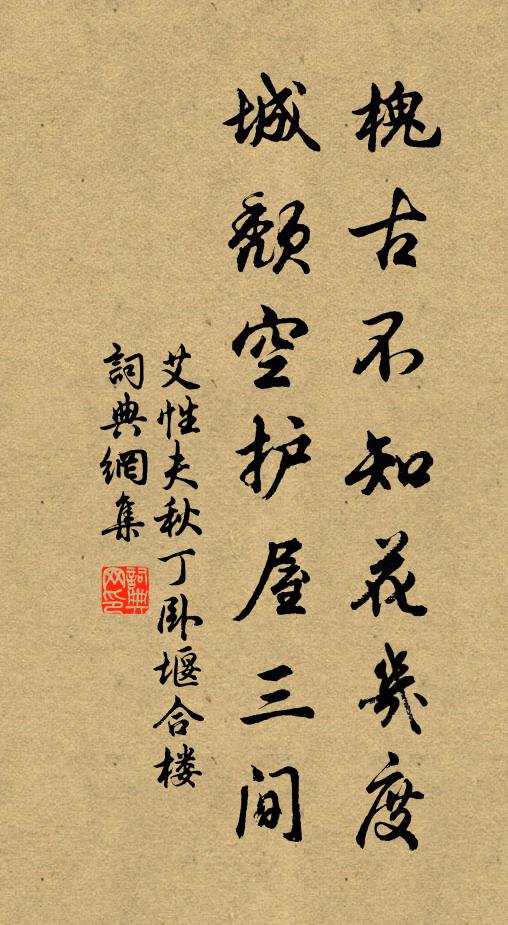 槐古不知花幾度
城頽空护屋三间
艾性夫秋丁卧堰合楼
詞典網集
詞典网印